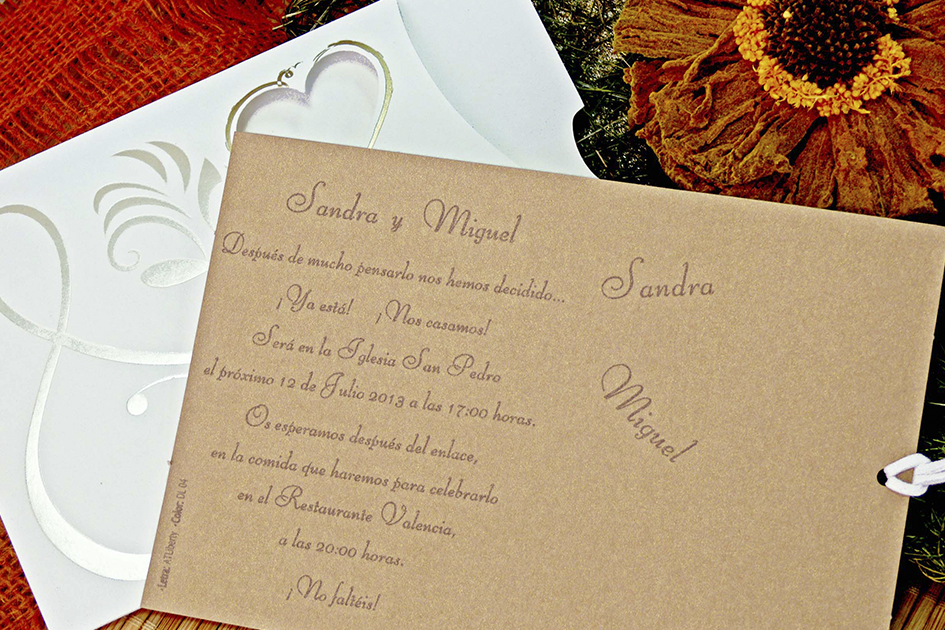 Sandra y Miguel
Después de mucho pensarlo nos hemos decidido...
¡Ya está! ¡Nos casamos!
Será en la Iglesia San Pedro
el próximo 12 de Julio 2013 a las 17:00 horas.
Os esperamos después del enlace,
en la comida que haremos para celebrarlo
en el Restaurante Valencia,
a las 20:00 horas.
¡No faltéis!
Sandra
Miguel
-Letra: ATLiberty -Color: OL 04